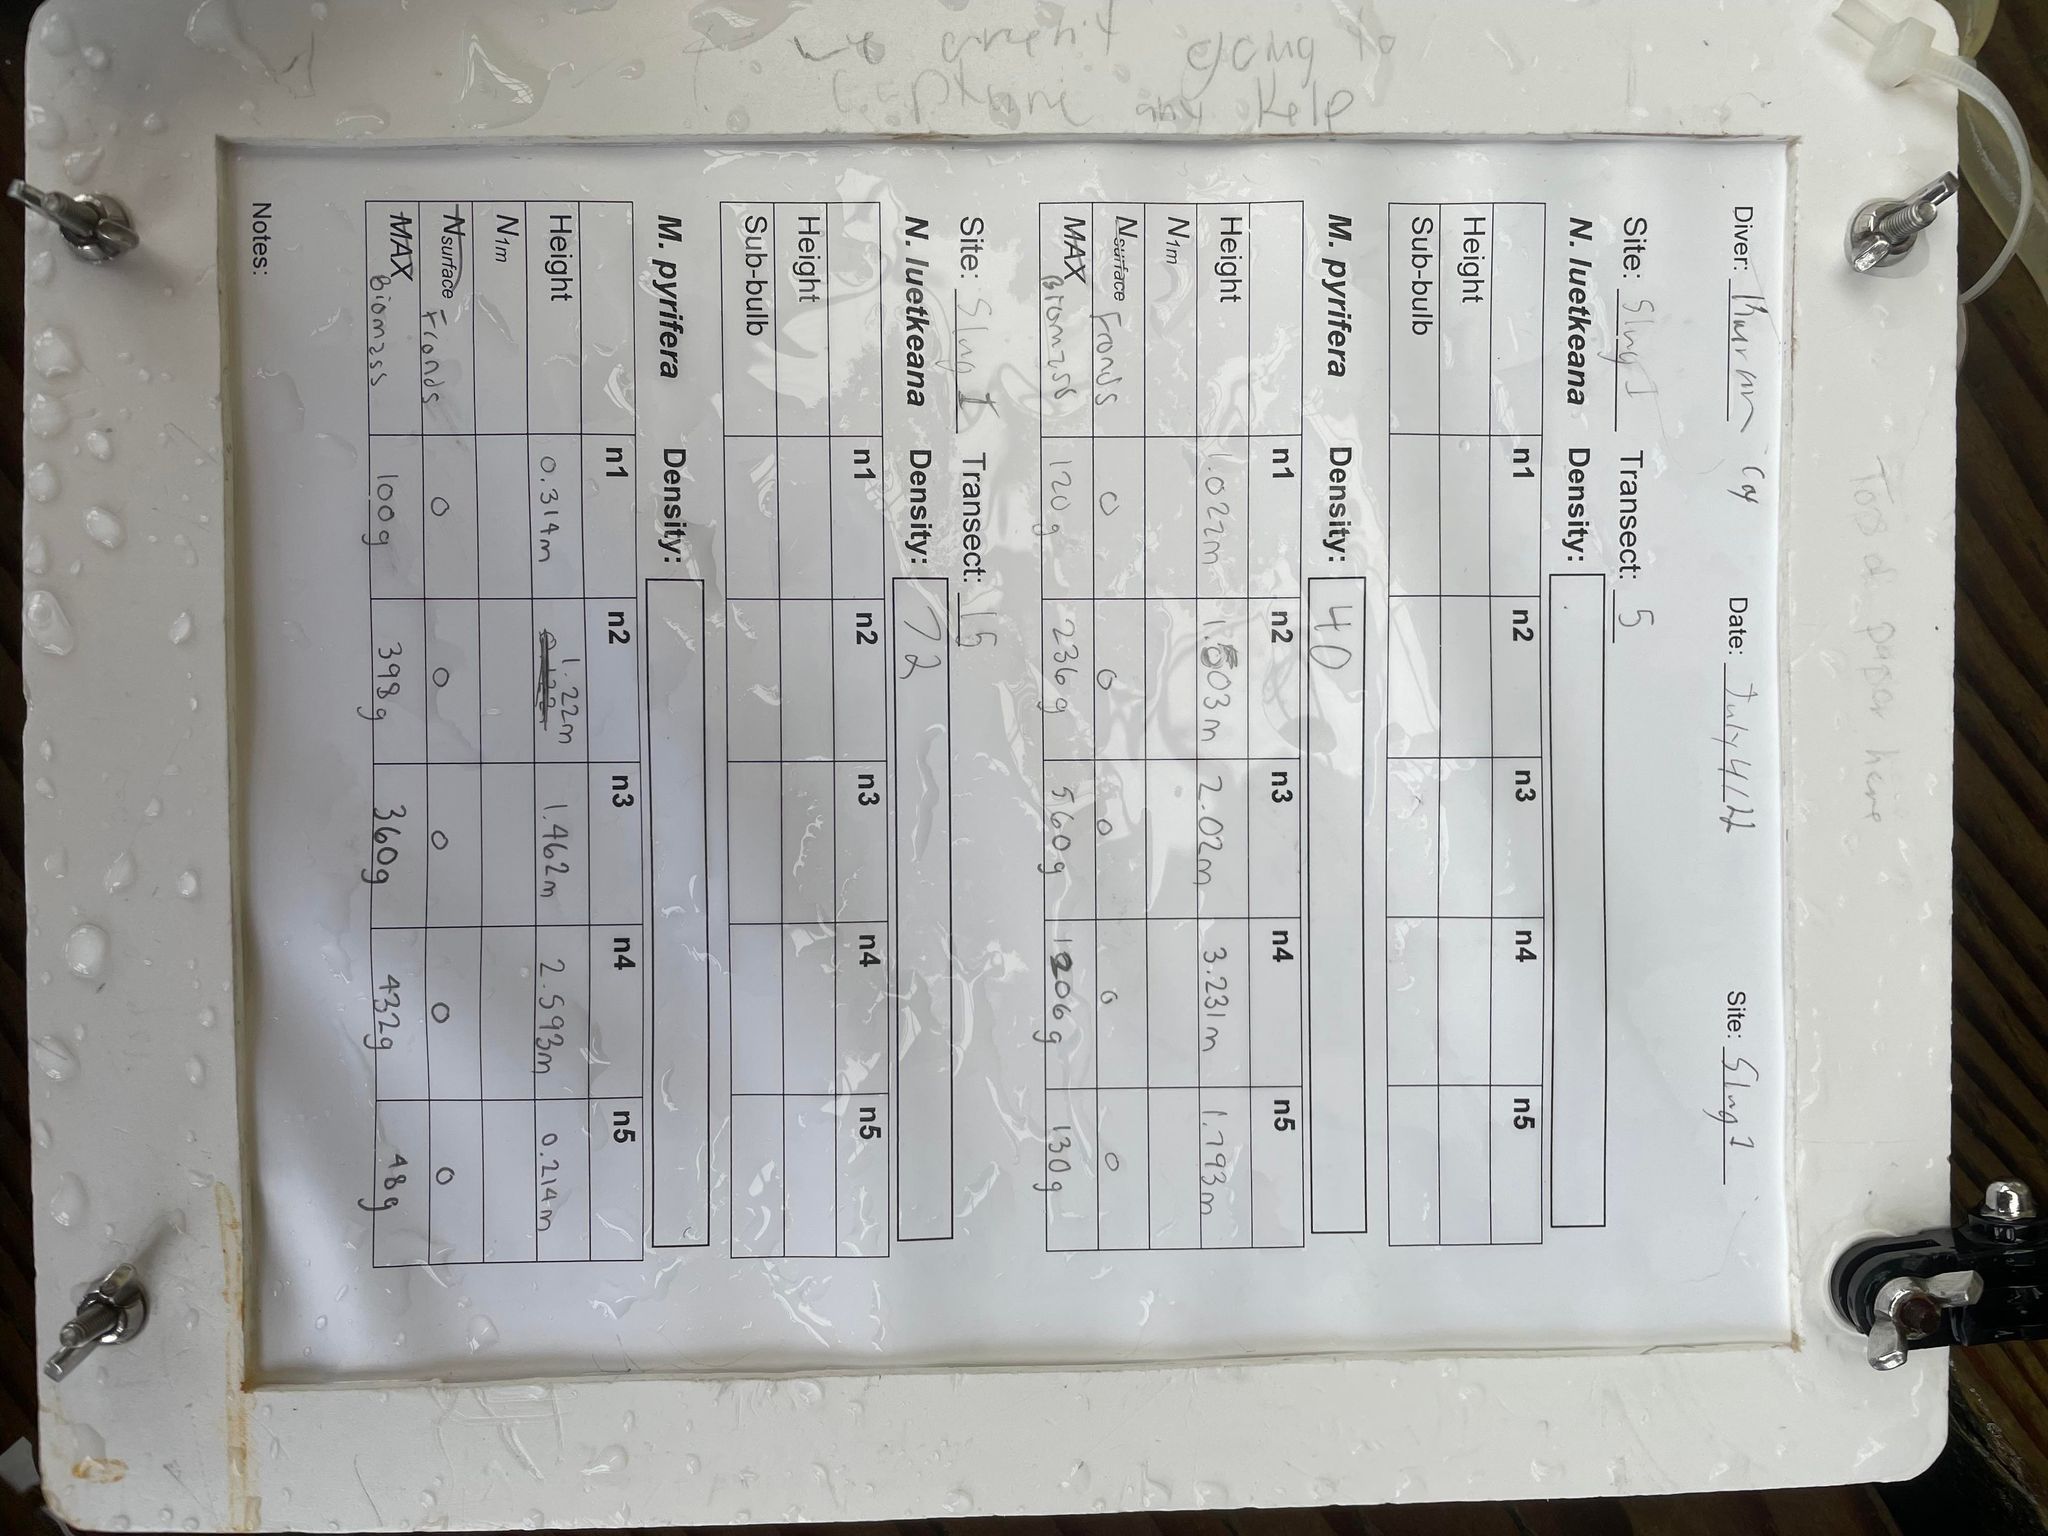 Top of paper here
Diver: Cox Date: July 4/22 Site: Slug I
Site: Slug I Transect: 5
N. luetkeana Density:
n1 n2 n3 n4 n5
Height
Sub-bulb
M. pyrifera Density: 40
n1 n2 n3 n4 n5
Height 1.022m 1.503m 2.02m 3.231m 1.793m
N1m
Nsurface Fronds 0 0 0 0 0
MAX Biomass 120g 236g 560g 1206g 130g
Site: Slug I Transect: 15
N. luetkeana Density: 72
n1 n2 n3 n4 n5
Height
Sub-bulb
M. pyrifera Density:
n1 n2 n3 n4 n5
Height 0.314m 1.22m 1.462m 2.593m 0.214m
N1m
Nsurface Fronds 0 0 0 0 0
MAX Biomass 100g 398g 360g 432g 48g
Notes:
we aren't going to
any kelp